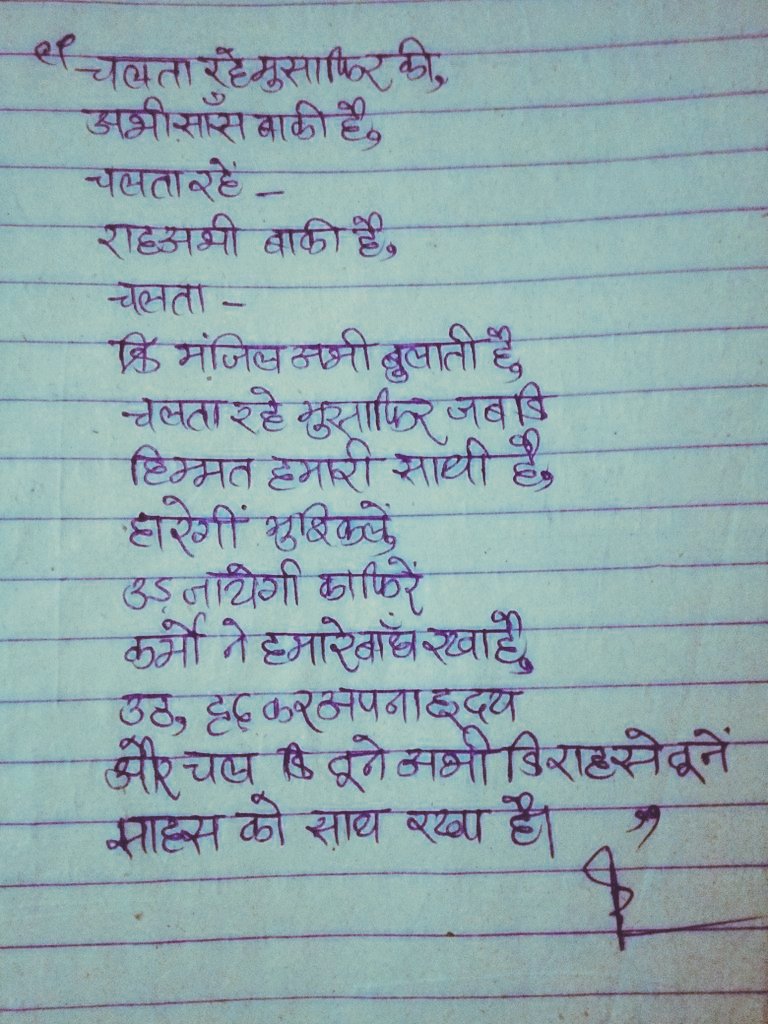 " चलता रहे मुसाफिर की,
अभी साँस बाकी है,
चलता रहें –
राह अभी बाकी है,
चलता –
कि मंजिल अभी बुलाती है,
चलता रहे मुसाफिर जब कि
हिम्मत हमारी साथी है,
हारेगीं मुश्किलें
उड़ जायेगी काफिरें
कर्मों ने हमारे बाँध रखा है,
उठ, दृढ़ कर अपना हृदय
और चल कि तूने अभी कि राह से तूनें
साहस को साथ रखा है। "